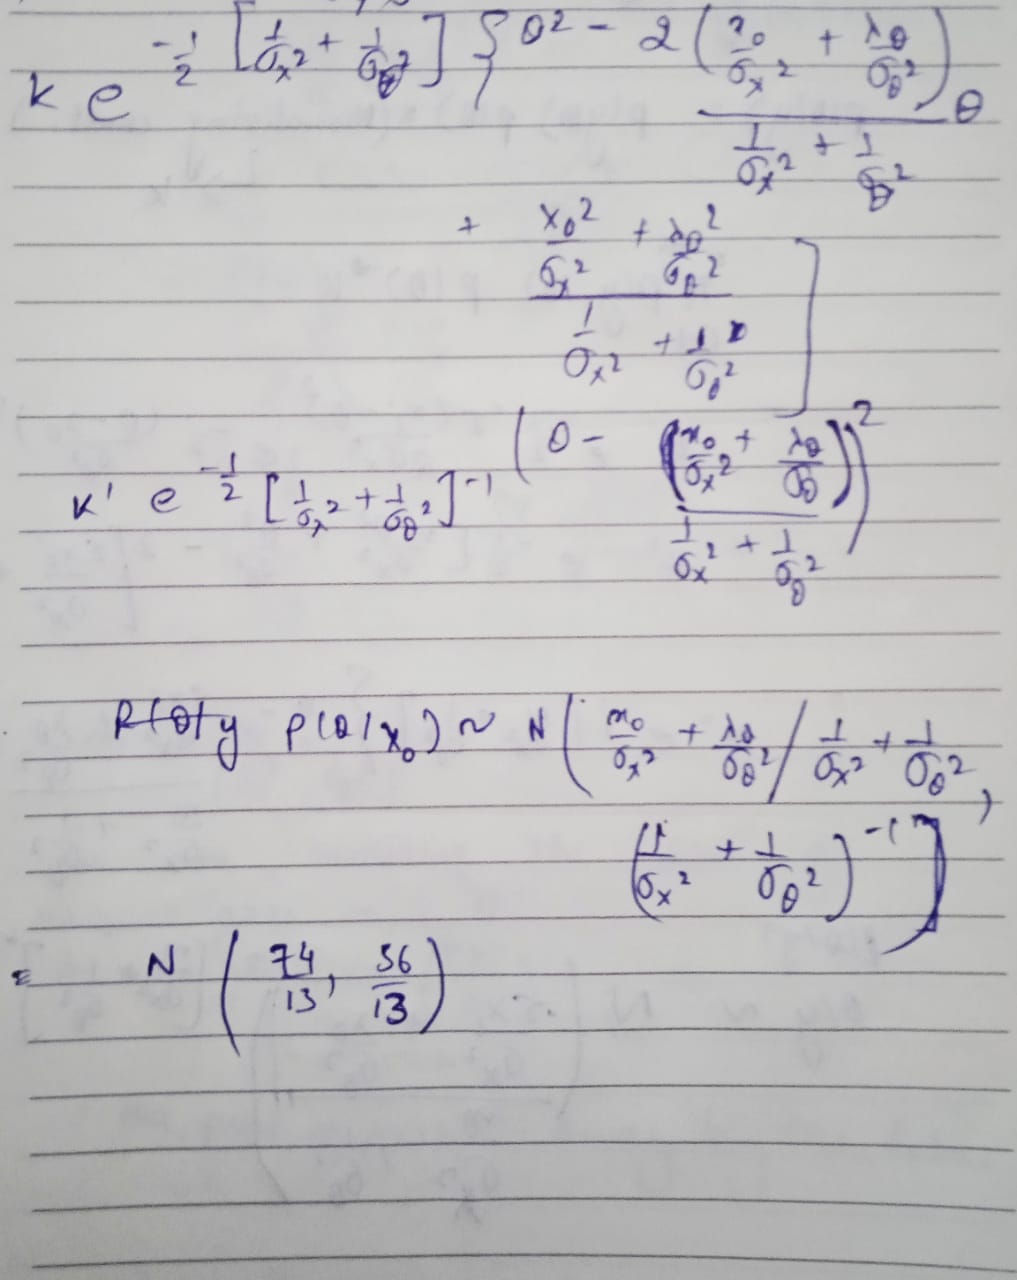 K e^{-\frac{1}{2} [\frac{1}{σ_x^2} + \frac{1}{σ_θ^2}] \{ θ^2 - 2 \frac{(\frac{x_0}{σ_x^2} + \frac{λ_θ}{σ_θ^2})}{\frac{1}{σ_x^2} + \frac{1}{σ_θ^2}} θ
+ \frac{\frac{x_0^2}{σ_x^2} + \frac{λ_θ^2}{σ_θ^2}}{\frac{1}{σ_x^2} + \frac{1}{σ_θ^2}} ]
K' e^{-\frac{1}{2} [\frac{1}{σ_x^2} + \frac{1}{σ_θ^2}]^{-1} (θ - \frac{(\frac{x_0}{σ_x^2} + \frac{λ_θ}{σ_θ})}{\frac{1}{σ_x^2} + \frac{1}{σ_θ^2}})^2}
P(θ|x_0) ~ N ( \frac{x_0}{σ_x^2} + \frac{λ_θ}{σ_θ^2} / \frac{1}{σ_x^2} + \frac{1}{σ_θ^2} ,
(\frac{1}{σ_x^2} + \frac{1}{σ_θ^2})^{-1} )
= N ( \frac{74}{13}, \frac{36}{13} )